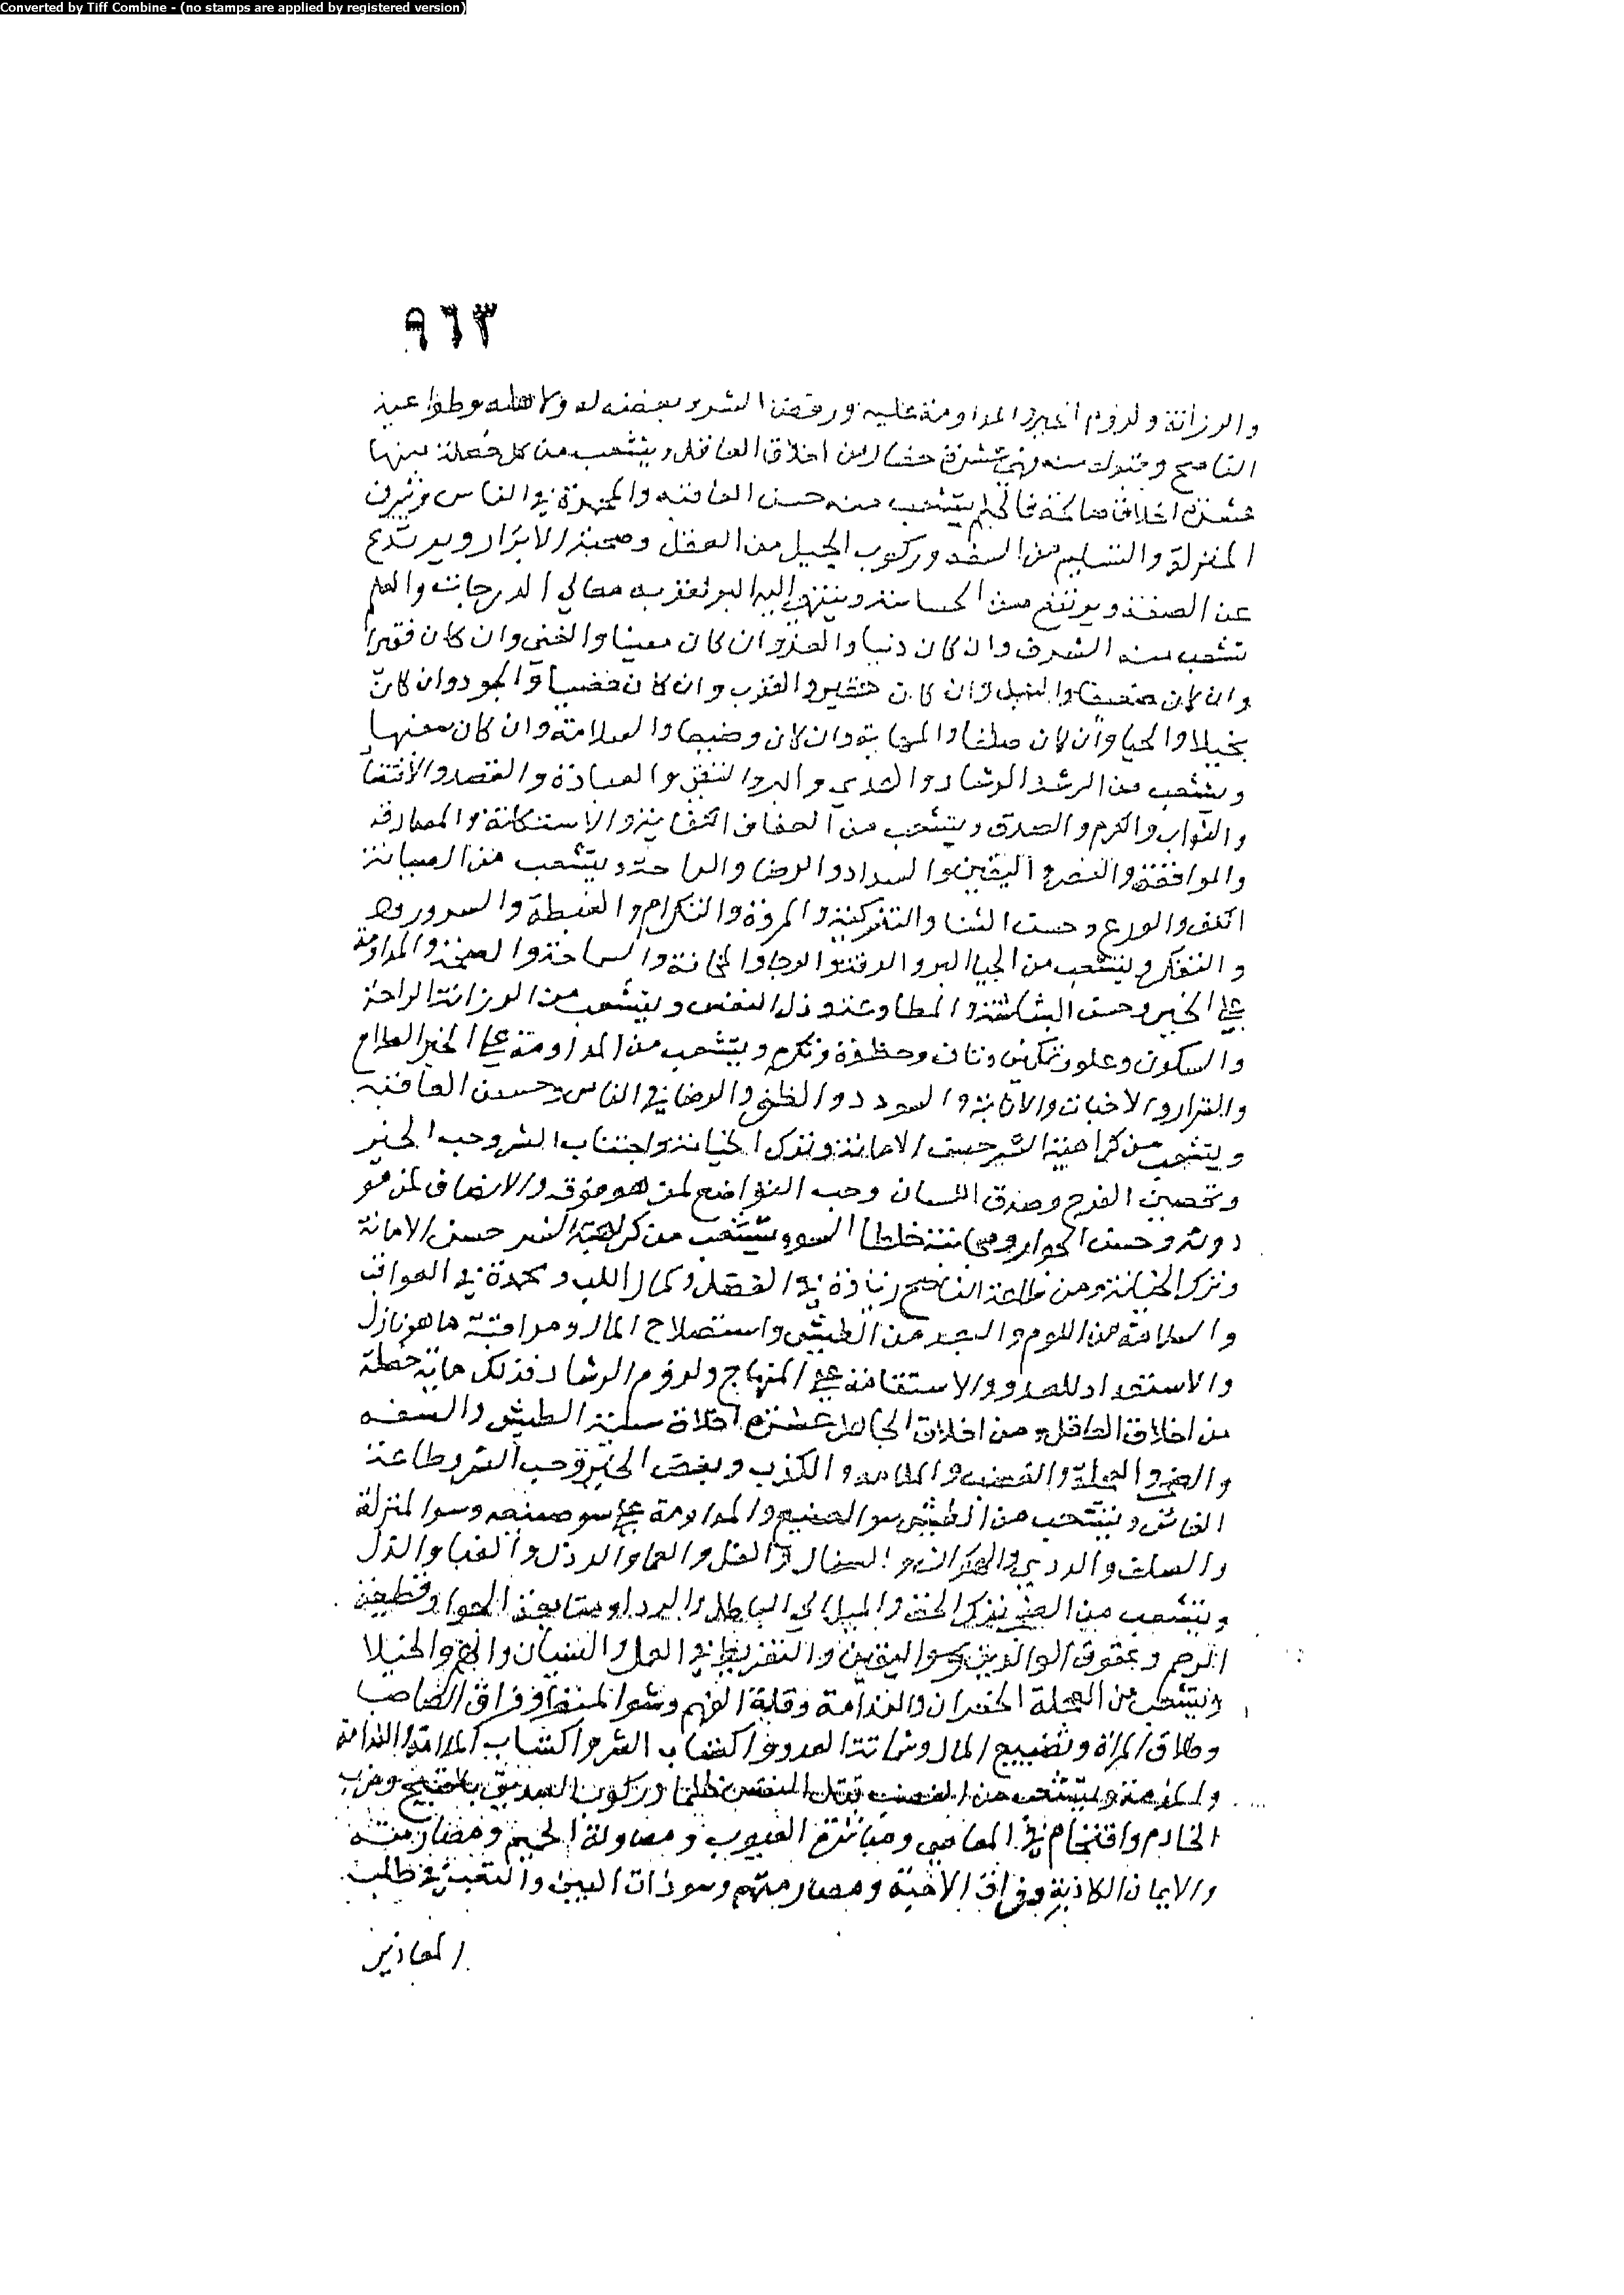 Converted by Tiff Combine - (no stamps are applied by registered version)
٩٦٣
والرزانة ولزوم الخير والمداومة عليه ورفض الشر وبغضه له ولاهله وطواعية
الناصح وقبوله منه فهي عشرة خصال من اخلاق العاقل ويتشعب من كل خصلة منها
عشرة اخلاق صالحة فالحلم يتشعب منه حسن العاقبه والمحمدة في الناس وشرف
المنزلة والتسليم من السفه وركوب الجميل من الفعل وصحبة الابرار ويرتدع
عن الضعة ويرتفع من الخساسة وينتهي اليه البر تقربه معالي الدرجات والعلم
تشعب منه الشرف وان كان دنيا والعز وان كان مهينا والغنى وان كان فقيرا
وان كان ضعيفا والنبل وان كان حقيرا والقرب وان كان قصيا والجود وان كان
بخيلا والحيا وان كان صلفا والمهابة وان كان وضيعا والسلامة وان كان سفيها
ويتشعب من الرشد الرشاد والهدي والبر والتقى والعبادة والقصد والاقتفا
والثواب والكرم والصدق ويتشعب من العفاف الكفاية والاستكانة والمصادقه
والموافقة والنصر واليقين والسداد والرضا والراحة ويتشعب من الصيانة
الكف والورع وحسن الثنا والتزكية والمروة والتكرام والغبطة والسرور
والتفكر ويتشعب من الحيا البر والرقة والرجا والمخانة والسماحة والصحة والمداومة
على الخير وحسن البشاشة والمطاوعة وذل النفس ويتشعب من الرزانة الراحة
والسكون وعلو وتمكين وتان وحظوة وتكرم ويتشعب من المداومة على الخير الصلاح
والقرار والاخبات والانابة والسودد والظفر والرضا في الناس وحسن العاقبه
ويتشعب من كراهية الشر حسن الامانة وترك الخيانة واجتناب الشر وحب الخير
وتحصين الفرج وصدق اللسان وحب التواضع لمن هو فوقه والانصاف لمن هو
دونه وحسن الجوار ومجانبة خلطا السو ويتشعب من كراهية الشر حسن الامانة
وترك الخيانة ومن طاعة الناصح زيادة في الفضل وكمال اللب ومحمدة في العواقب
والسلامة من اللوم والبعد من الطيش واستصلاح المال ومراقبة ما هو نازل
والاستعداد للعدو والاستقامة على المنهاج ولزوم الرشاد فذلك ماية خصلة
من اخلاق العاقل ومن اخلاق الجاهل عشرة اخلاق سيئة الطيش والسفه
والعجلة والغضب والملامه والكذب وبغض الخير وحب الشر وطاعة
الغاش ويتشعب من الطيش سو الصنيع والمداومة على سو صنعه وسو المنزلة
والردي والسفال والغل والعما والرذل والغبا والذل
ويتشعب من ترك الحق والميل الى الباطل والردا ومتابعة الهوا وقطيعة
الرحم وعقوق الوالدين وسو اليقين والتفريط في العمل والنسيان والهم والخيلا
ويتشعب من العجلة الخسران والندامة وقلة الفهم وسو المنظر وفراق الصاحب
وطلاق المراة وتضييع المال وشماتة العدو واكتساب الشر واكتساب الملامة الندامة
والمذمة ويتشعب من الغضب قتل النفس ظلما وركوب الصديق بالقبيح وضرب
الخادم واقتحام في المعاصي ومباشرة العيوب ومصاولة الحميم ومصارمته
والايمان الكاذبة وفراق الاحبة ومصارمتهم وسو ذات البين والتعب في طلب
المعاذير